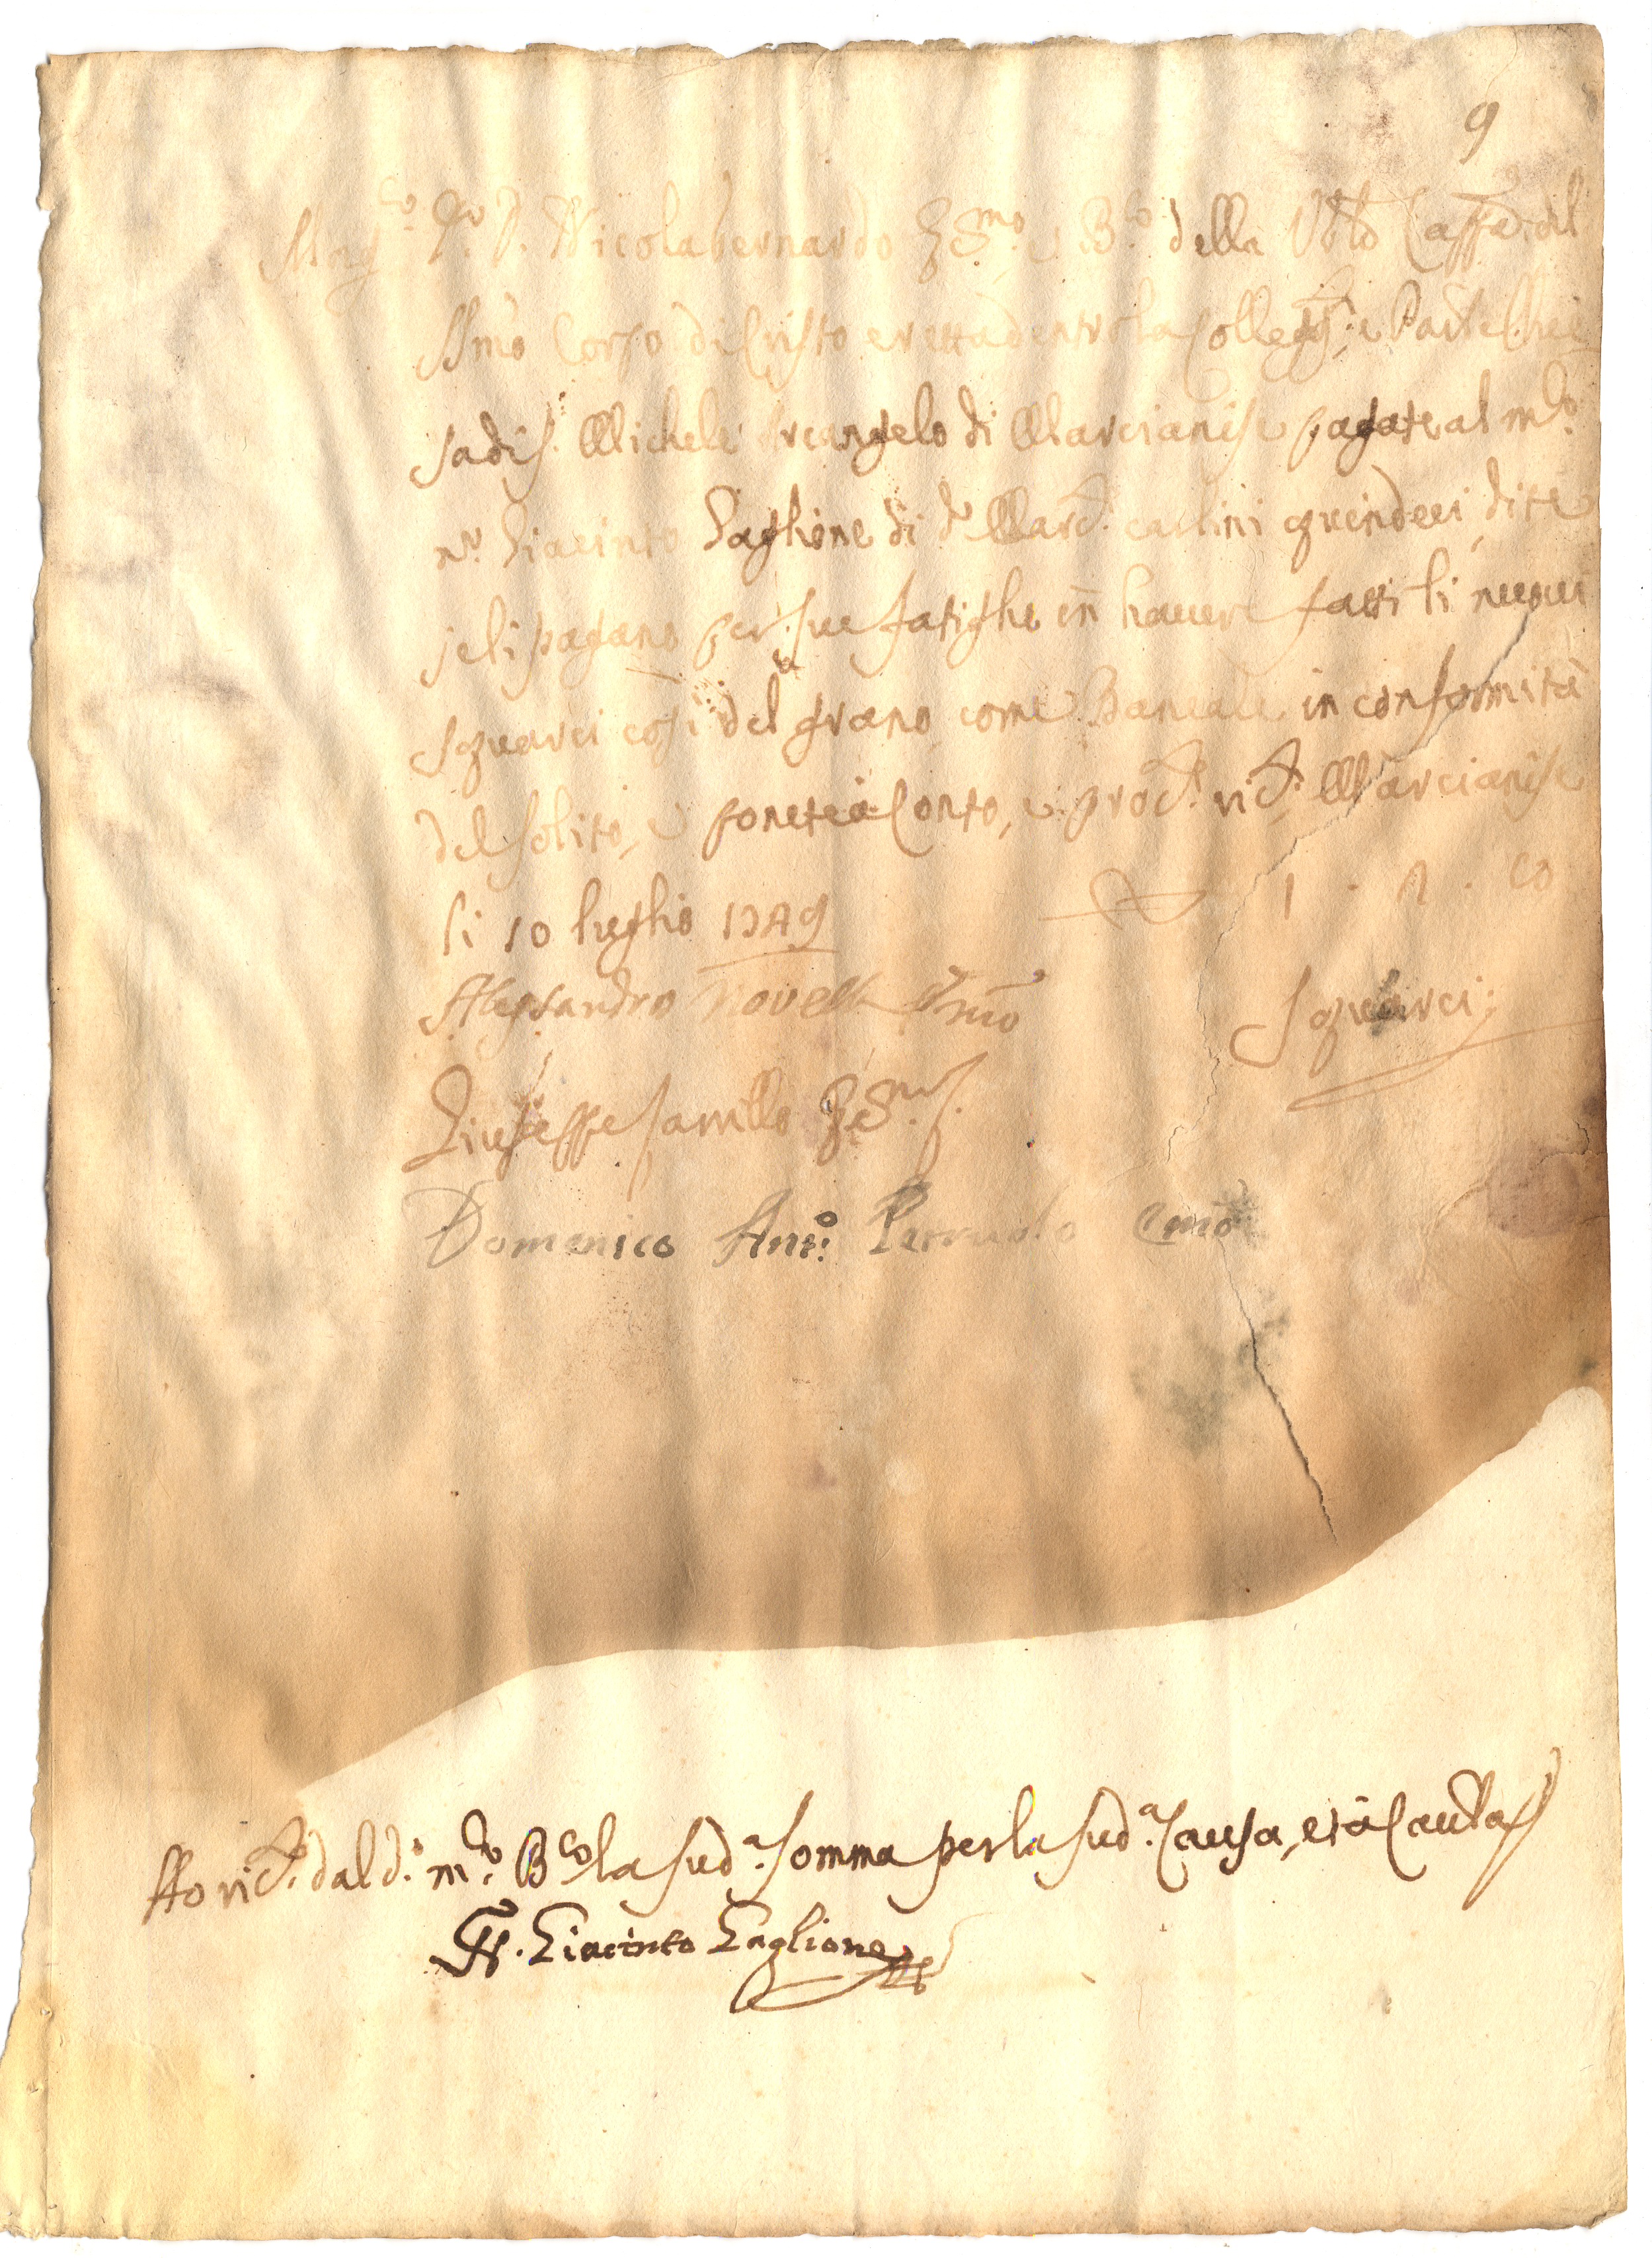 9
Mag.co N.r D. Nicolabernardo Ec.mo e B.ro della Ven. Capp. del
SSmo Corpo di Cristo eretta dentro la Colleg. e Par.le Chie
sa di S. Michele Arcangelo di Marcianise pagate al m.co
n.r Giacinto Gaglione di d.o Marc. carlini quindeci, dite
seli pagano per sue fatighe in havere fatti li nuovi
squarci così del grano, come Baneale in conformità
del solito, e ponete à Conto, e pros.t ric.t Marcianise
li 10 luglio 1749 1 . 2 . 10
Alessandro Novelli Emo Squarci
Giuseppe Ec.mo
Domenico Ant.o Perruolo Emo
Ho ric.t dal d.o m.co B.ro la sud.a somma per la sud.a Causa, et à Cautela
N. Giacinto Gaglione